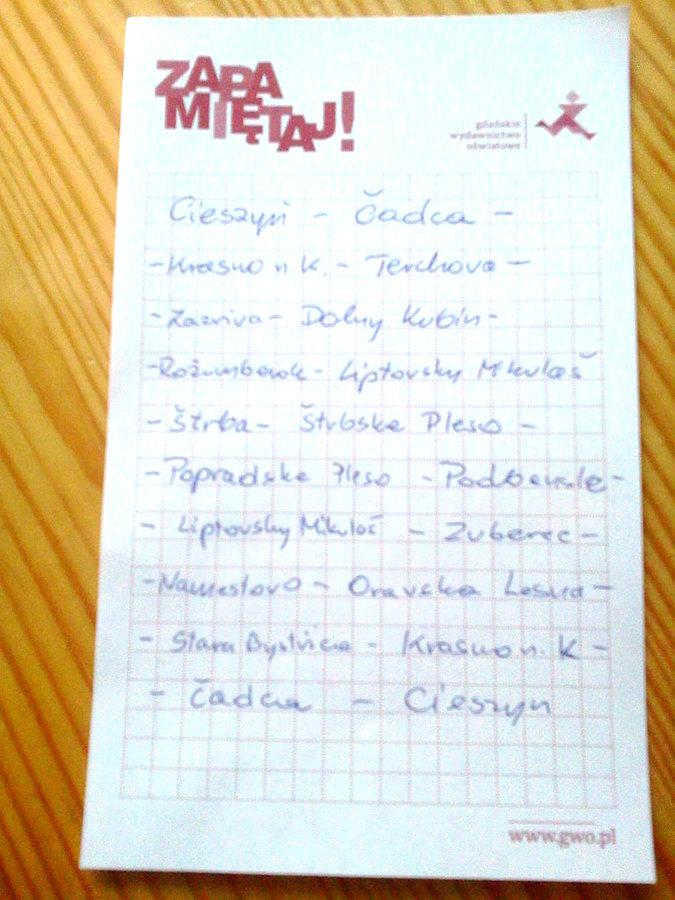 ZAPA
MIĘTAJ!
gdańskie
wydawnictwo
oświatowe
Cieszyn - Čadca -
- Krasno n K. - Terchova -
- Zazriva - Dolny Kubin -
- Rožumberok - Liptovsky Mikulaš
- Štrba - Štrbske Pleso -
- Popradske Pleso - Podbanske -
- Liptovsky Mikulaš - Zuberec -
- Namestovo - Oravska Lesna -
- Stara Bystrica - Krasno n. K -
- Čadca - Cieszyn
www.gwo.pl